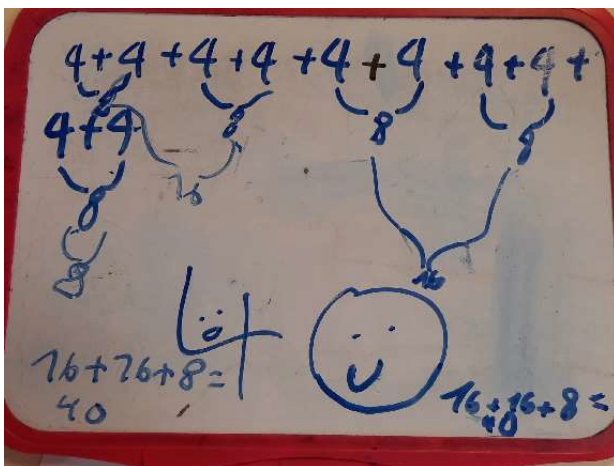 4+4 +4+4 +4+4 +4+4+
8 8 8 8
4+4
16
8
16
8
16+16+8=
40
16+16+8=
40